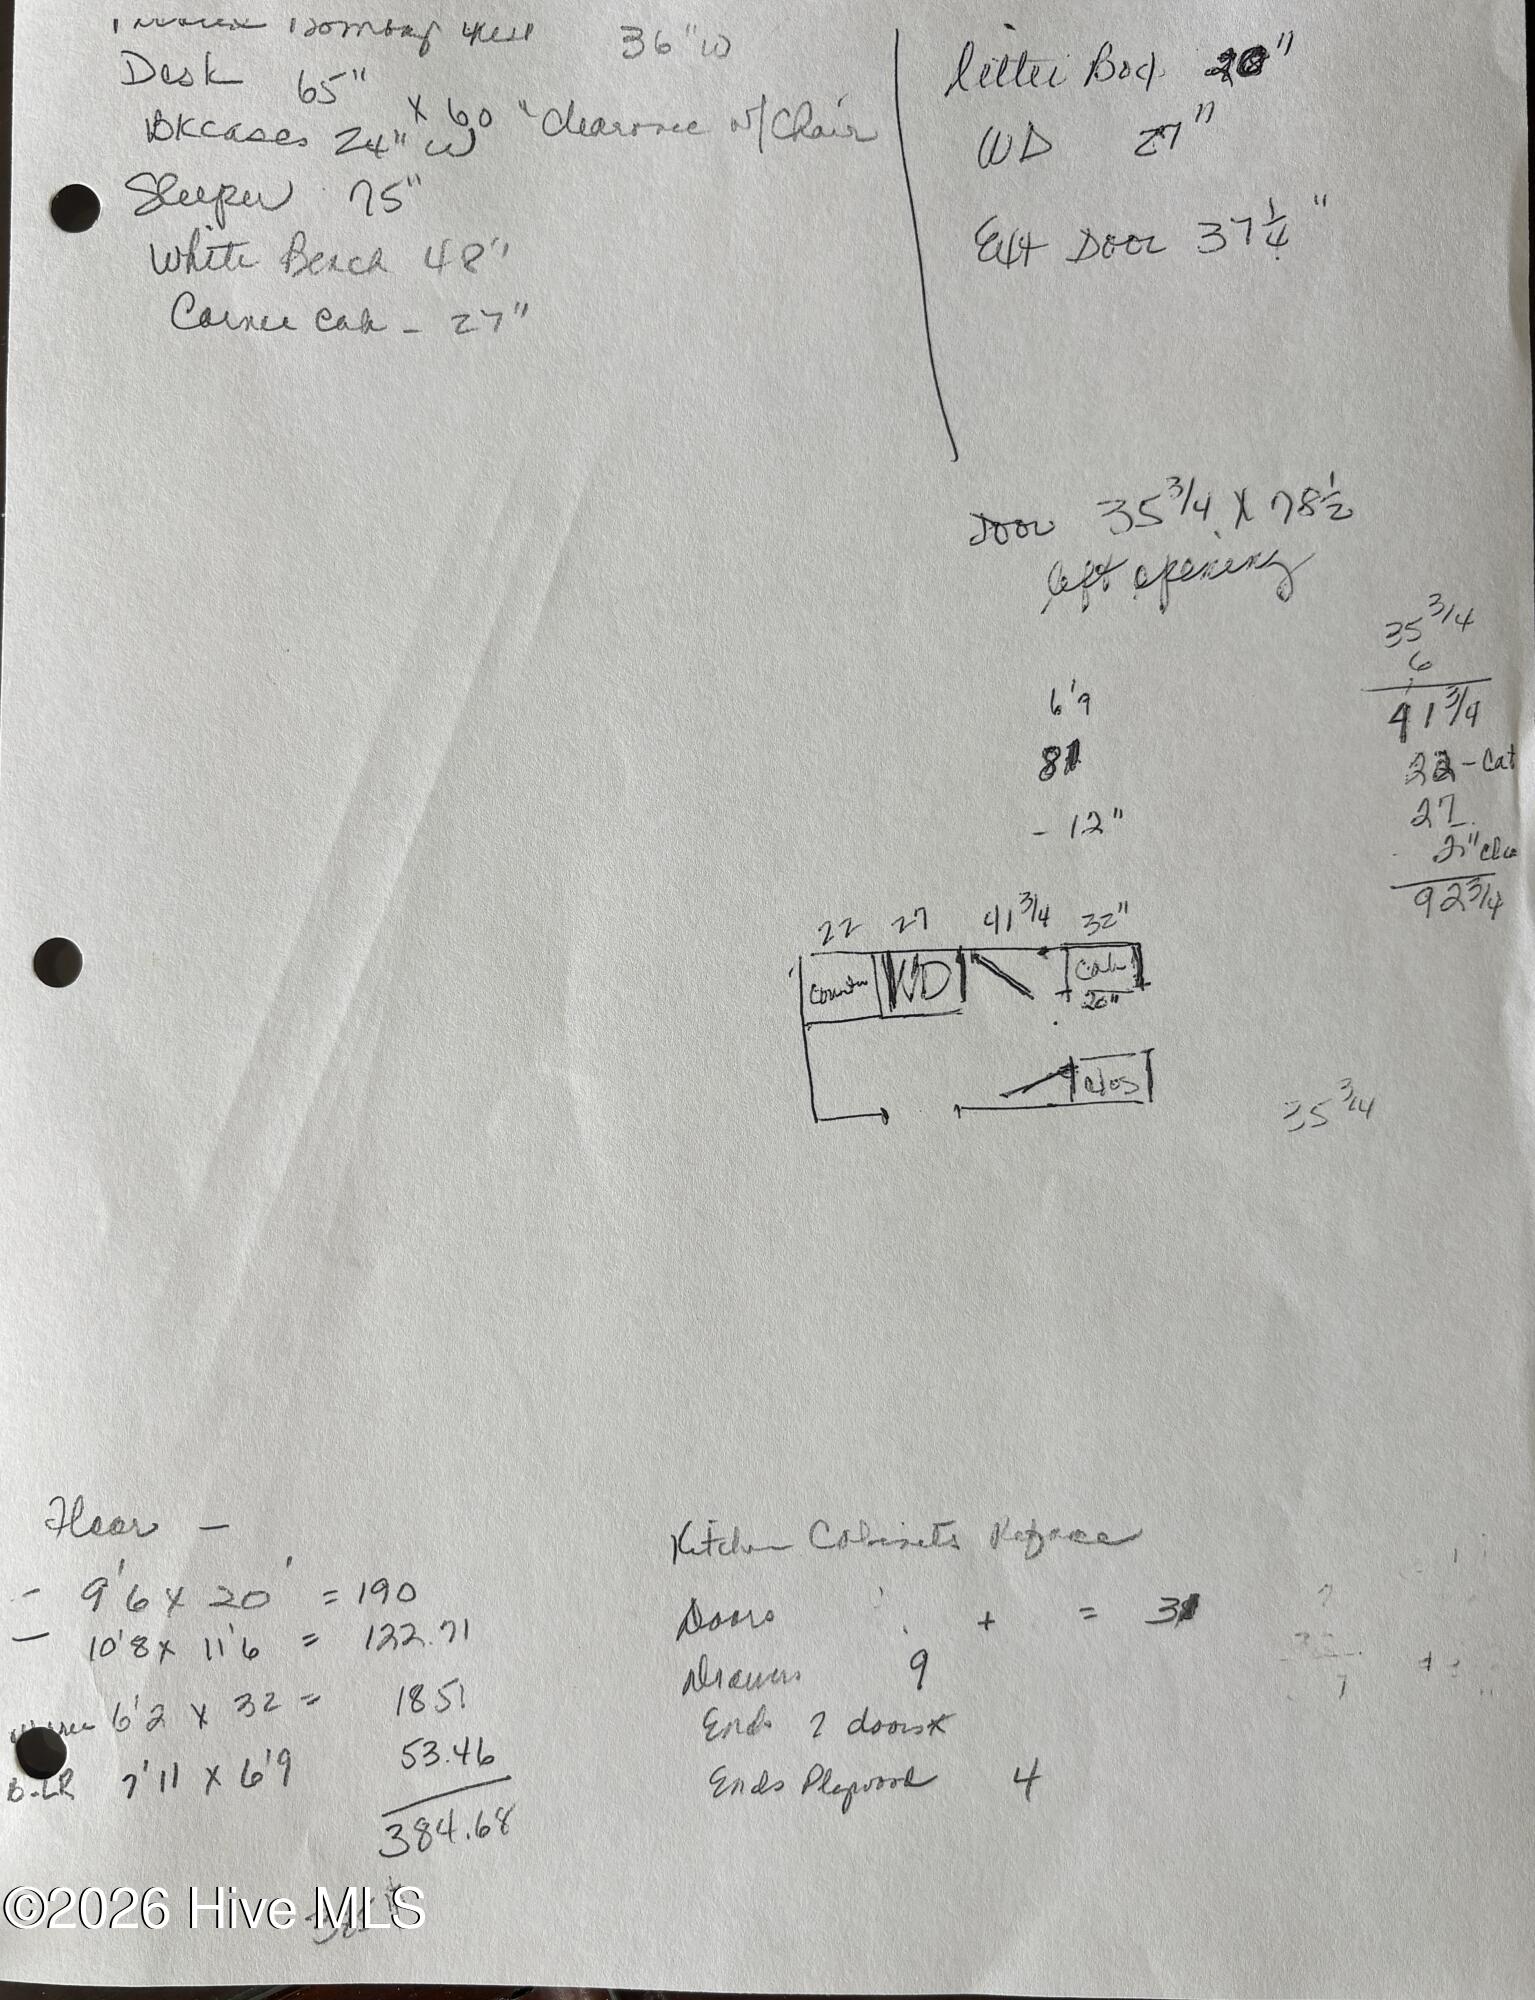 36" W
Desk 65" x 60 "clearance w/ Chair
BKcases 24" W
Sleeper 75"
White Bench 48"
Corner cab - 27"
litter Box 20"
WD 27"
Ext Door 37 1/4"
Door 35 3/4 X 78 1/2
left opening
6'9
81
- 12"
35 3/4
6
41 3/4
22 - Cat
27
2"
92 3/4
22 27 41 3/4 32"
Counter WD Cab
20"
clos
35 3/4
Floor -
- 9'6 x 20' = 190
- 10'8 x 11'6 = 122.71
6'2 x 32 = 18.51
B-LR 7'11 x 6'9 53.46
384.68
385 #
Kitchen Cabinets Reface
Doors + = 31
Drawers 9
Ends 2 doors*
Ends Plywood 4
©2026 Hive MLS